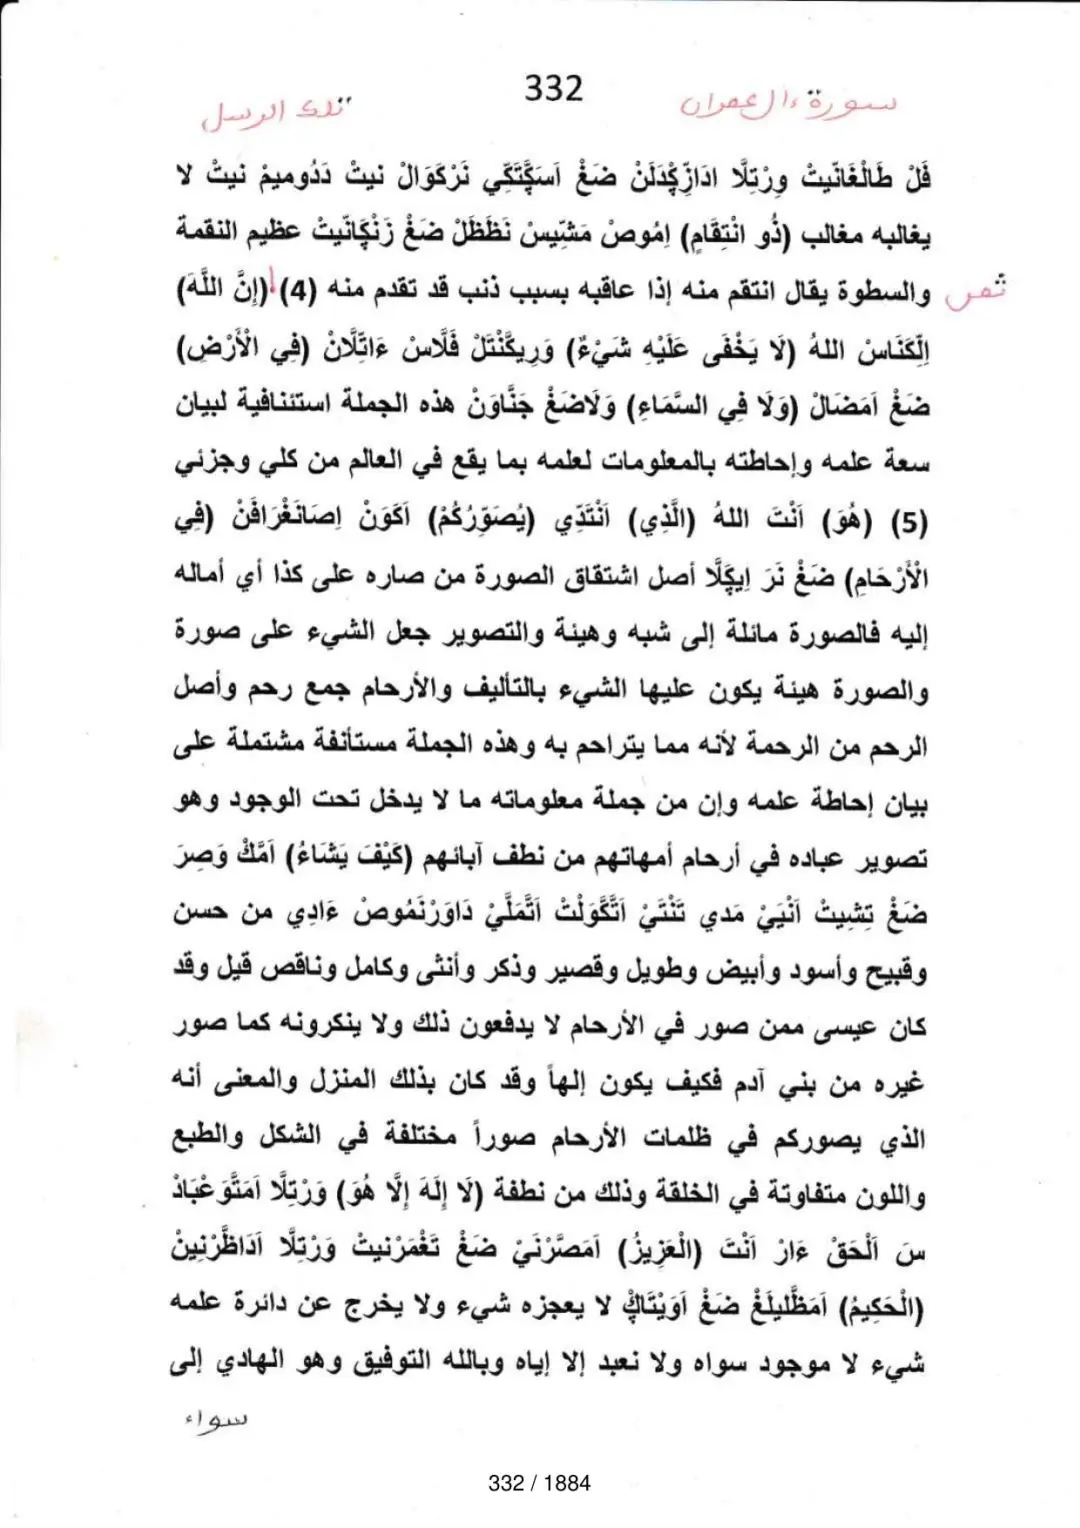 332
سورة ءال عمران
تلك الرسل
فَلْ طَالْغَانِّيتْ وِرْتِلَّا ادَازِڭْدَلَنْ ضَغْ اَسَڭَّتَكِّي نَرْكَوَالْ نيتْ دَدُومِيمْ نيتْ لا
يغالبه مغالب (ذُو انْتِقَامٍ) اِمُوصْ مَشِّيسْ نَظَظَلْ ضَغْ زَنْڭَانِّيتْ عظيم النقمة
والسطوة يقال انتقم منه إذا عاقبه بسبب ذنب قد تقدم منه (4) (إِنَّ اللَّهَ)
ثمن
اِلْكَنَاسْ اللهُ (لَا يَخْفَى عَلَيْهِ شَيْءٌ) وَرِيكَنْتَلْ فَلَّاسْ ءَاتِلَّانْ (فِي الْأَرْضِ)
ضَغْ اَمَضَالْ (وَلَا فِي السَّمَاءِ) وَلَاضَغْ جَنَّاوَنْ هذه الجملة استئنافية لبيان
سعة علمه وإحاطته بالمعلومات لعلمه بما يقع في العالم من كلي وجزئي
(5) (هُوَ) اَنْتَ اللهُ (الَّذِي) اَنْتَدِّي (يُصَوِّرُكُمْ) اَكَوَنْ اِصَانَغْرَافَنْ (فِي
الْأَرْحَامِ) ضَغْ نَرَ اِيكَلَّا أصل اشتقاق الصورة من صاره على كذا أي أماله
إليه فالصورة مائلة إلى شبه وهيئة والتصوير جعل الشيء على صورة
والصورة هيئة يكون عليها الشيء بالتأليف والأرحام جمع رحم وأصل
الرحم من الرحمة لأنه مما يتراحم به وهذه الجملة مستأنفة مشتملة على
بيان إحاطة علمه وإن من جملة معلوماته ما لا يدخل تحت الوجود وهو
تصوير عباده في أرحام أمهاتهم من نطف آبائهم (كَيْفَ يَشَاءُ) اَمَّكْ وَصِرَ
ضَغْ تِشِيتْ اَنْيَيْ مَدي تَنْتَيْ اَتَّكَوَلْتْ اَتَّمَلَّيْ دَاوَرْنَمُوصْ ءَادِي من حسن
وقبيح وأسود وأبيض وطويل وقصير وذكر وأنثى وكامل وناقص قيل وقد
كان عيسى ممن صور في الأرحام لا يدفعون ذلك ولا ينكرونه كما صور
غيره من بني آدم فكيف يكون إلهاً وقد كان بذلك المنزل والمعنى أنه
الذي يصوركم في ظلمات الأرحام صوراً مختلفة في الشكل والطبع
واللون متفاوتة في الخلقة وذلك من نطفة (لَا إِلَهَ إِلَّا هُوَ) وَرْتِلَّا اَمَتَّوَعْبَادْ
سَ اَلْحَقْ ءَارْ اَنْتَ (الْعَزِيزُ) اَمَصَّرْنَيْ ضَغْ تَغْمَرْنيتْ وَرْتِلَّا اَدَاظَّرْنِينْ
(الْحَكِيمُ) اَمَظَّليلَغْ ضَغْ اَوَيْتَاڭْ لا يعجزه شيء ولا يخرج عن دائرة علمه
شيء لا موجود سواه ولا نعبد إلا إياه وبالله التوفيق وهو الهادي إلى
سواء
332 / 1884